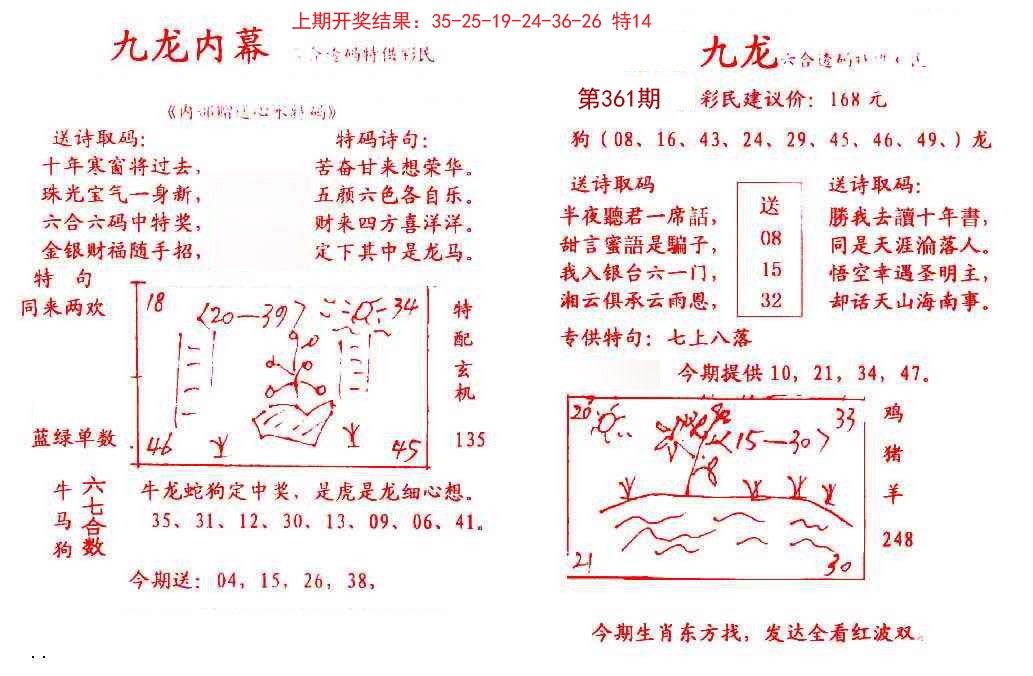 上期开奖结果：35-25-19-24-36-26 特14
九龙内幕
送诗取码：
十年寒窗将过去，
珠光宝气一身新，
六合六码中特奖，
金银财福随手招，
特码诗句：
苦奋甘来想荣华。
五颜六色各自乐。
财来四方喜洋洋。
定下其中是龙马。
特 句
同来两欢
蓝绿单数
18
〈20—39〉
34
46
45
特
配
玄
机
135
牛
马
狗
六七合数
牛龙蛇狗定中奖，是虎是龙细心想。
35、31、12、30、13、09、06、41。
今期送：04，15，26，38，
九龙六合透码
第361期
彩民建议价：168元
狗（08、16、43、24、29、45、46、49、）龙
送诗取码
半夜聽君一席話，
甜言蜜語是騙子，
我入银台六一门，
湘云俱承云雨恩，
送
08
15
32
送诗取码：
勝我去讀十年書，
同是天涯渝落人。
悟空幸遇圣明主，
却话天山海南事。
专供特句：七上八落
今期提供10，21，34，47。
20
33
〈15—30〉
21
30
鸡
猪
羊
248
今期生肖东方找，发达全看红波双。